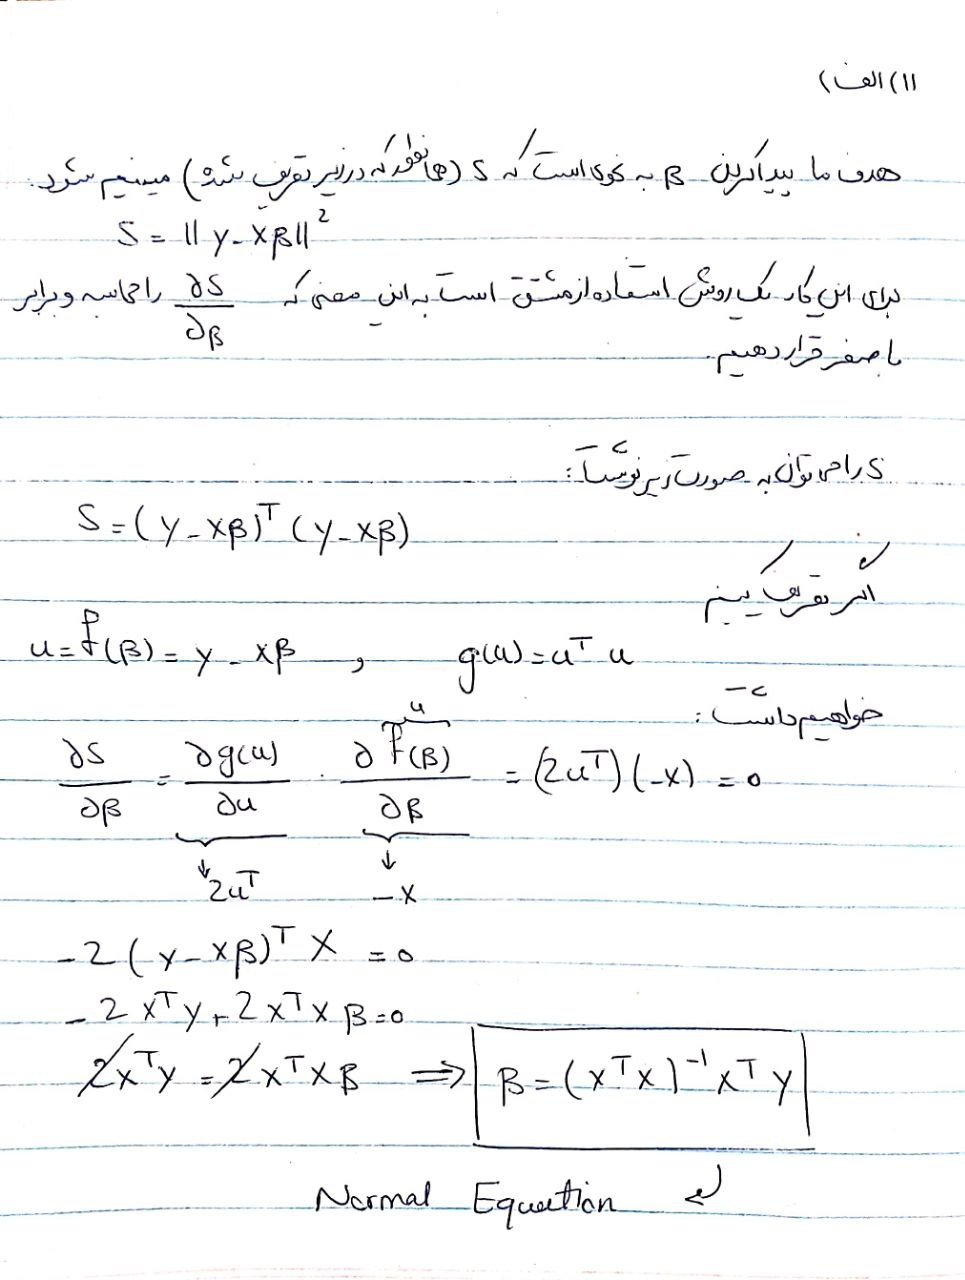 ۱۱) الف)
هدف ما پیدا کردن β به نحوی است که S (همانطور که در زیر تعریف شده) مینیمم شود.
S = ||y - xβ||²
برای این کار یک روش استفاده از مشتق است به این معنی که ∂S/∂β را محاسبه و برابر
با صفر قرار دهیم.
S را می توان به صورت زیر نوشت:
S = (y - xβ)ᵀ (y - xβ)
اگر تعریف کنیم
u = f(β) = y - xβ , g(u) = uᵀ u
خواهیم داشت:
u
∂S/∂β = ∂g(u)/∂u · ∂f(β)/∂β = (2uᵀ)(-x) = 0
↓ 2uᵀ ↓ -x
-2 (y - xβ)ᵀ x = 0
-2 xᵀy + 2xᵀxβ = 0
2xᵀy = 2xᵀxβ ⟹ β = (xᵀx)⁻¹ xᵀ y
Normal Equation ↲